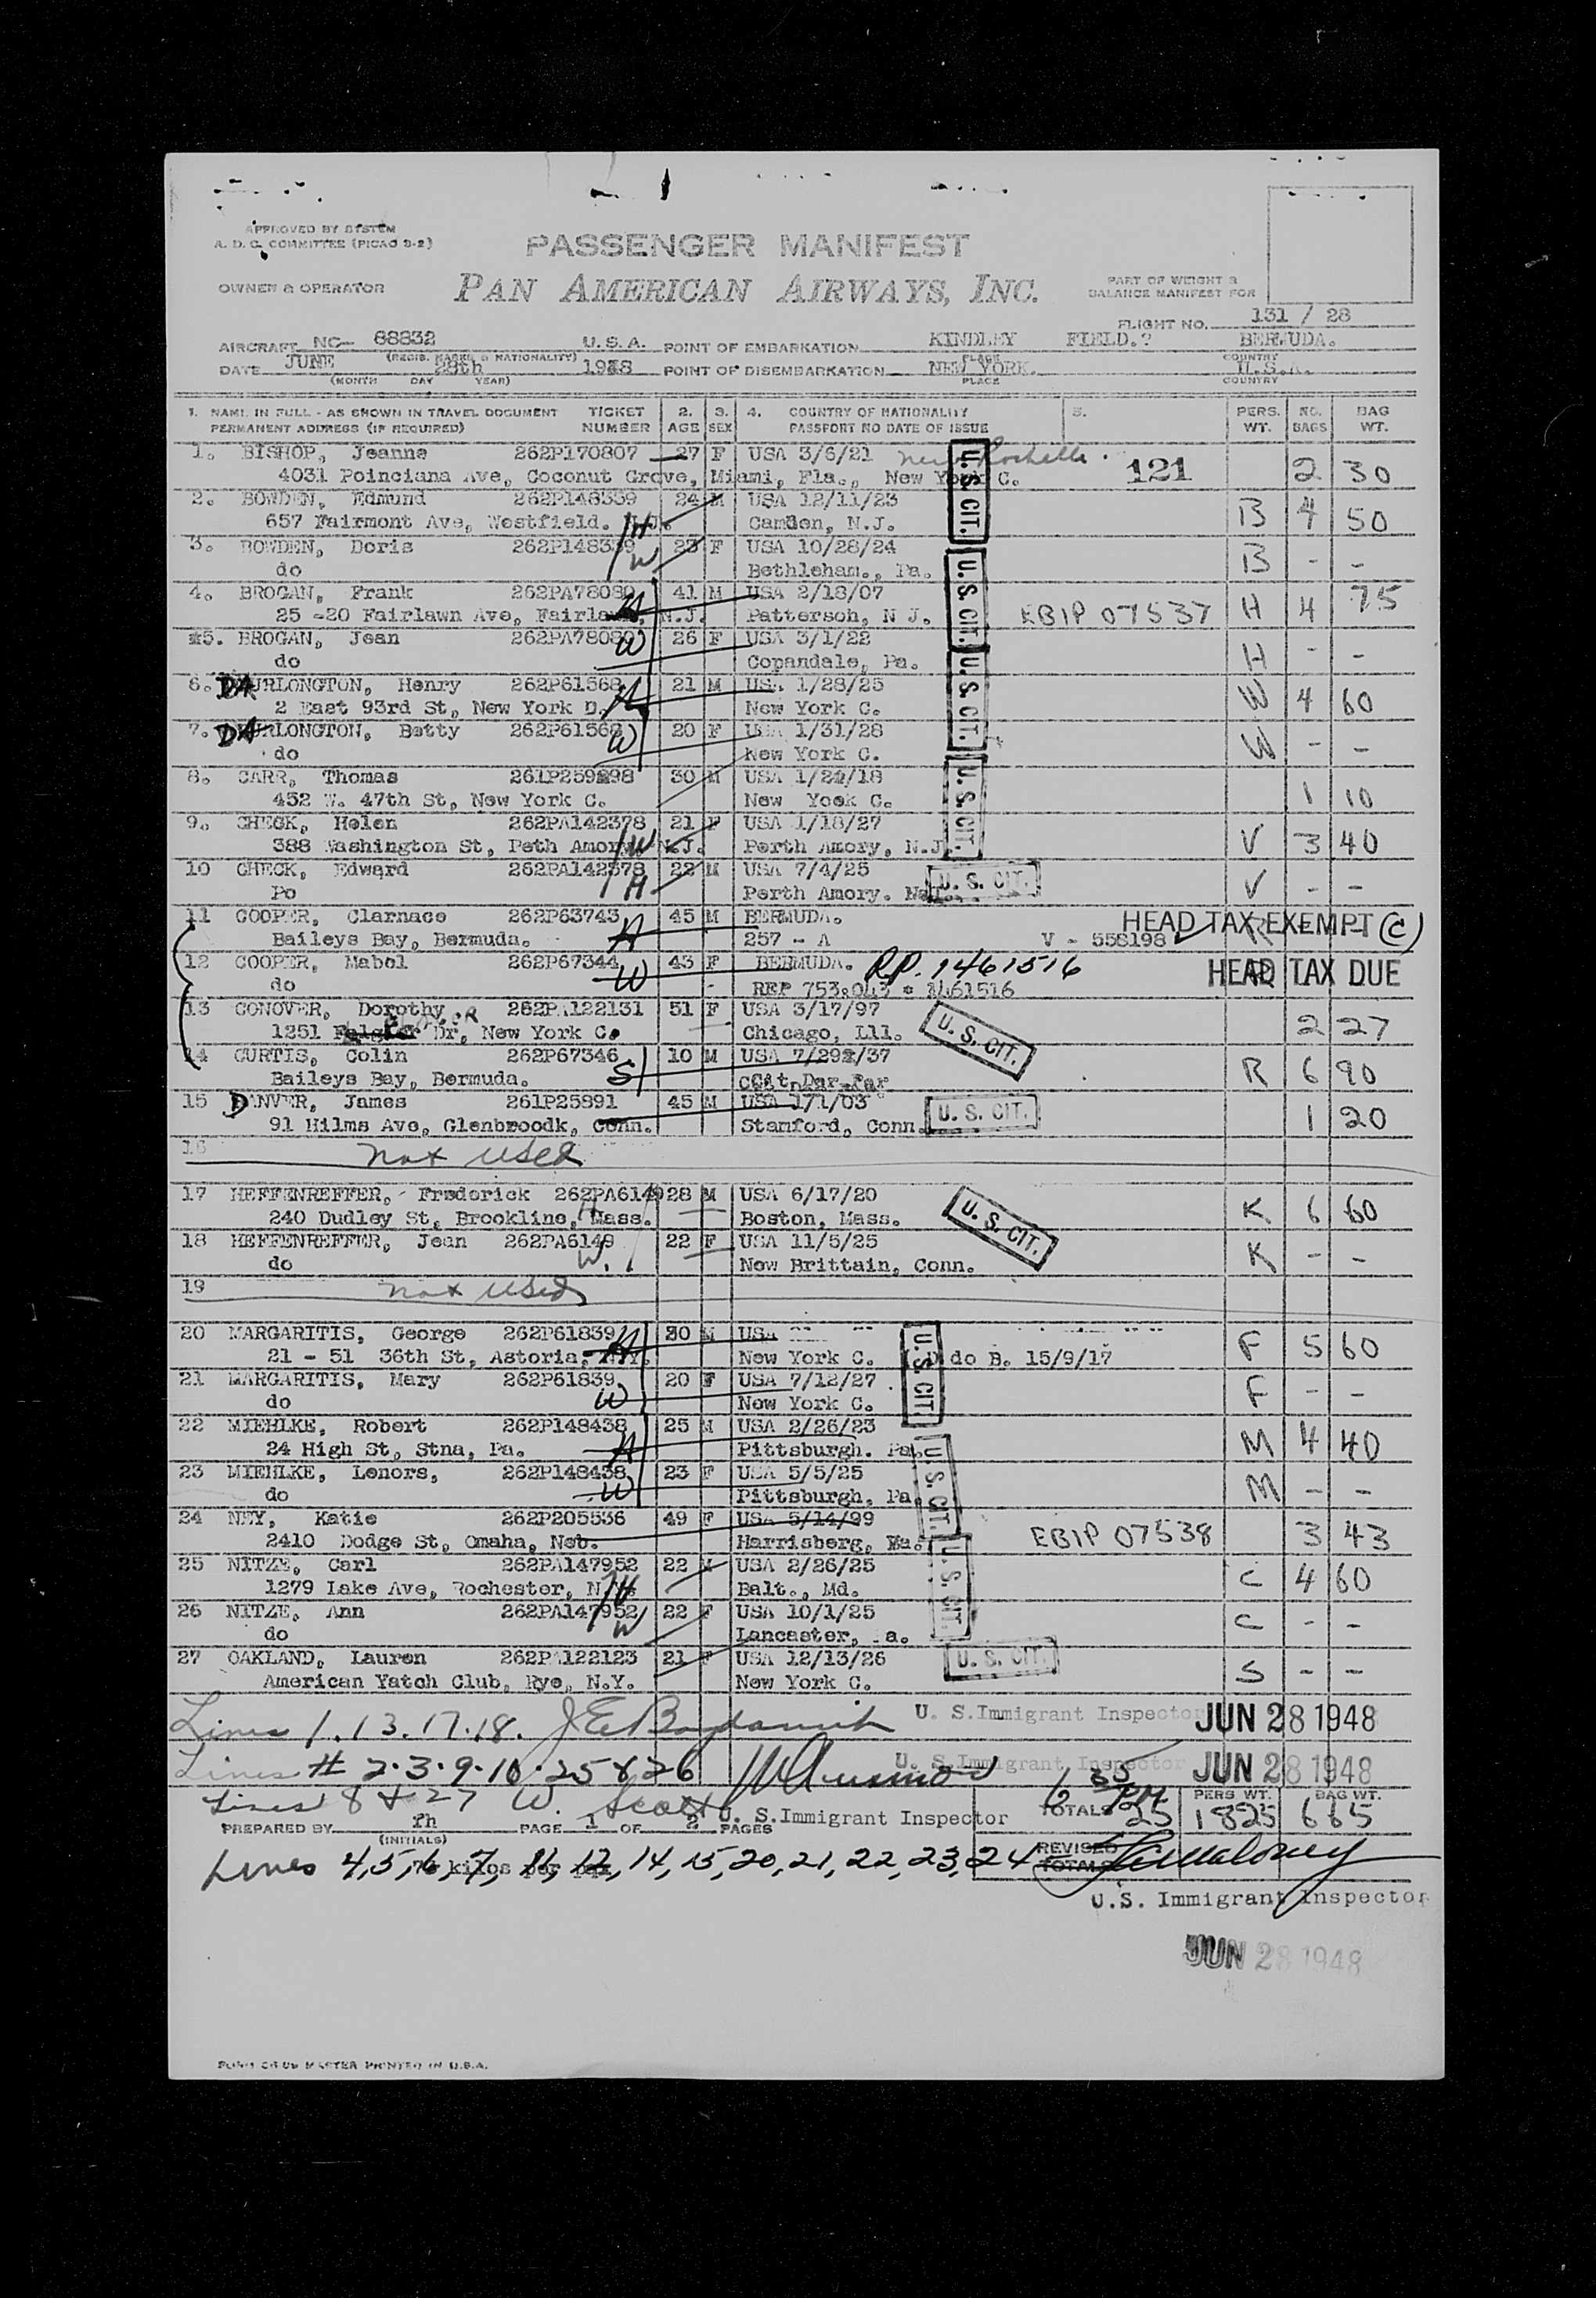 APPROVED BY SYSTEM
A. D. C. COMMITTEE (PICAO 3-2)
PASSENGER MANIFEST
OWNER & OPERATOR
PAN AMERICAN AIRWAYS, INC.
PART OF WEIGHT &
BALANCE MANIFEST FOR
FLIGHT NO. 131 / 28
AIRCRAFT NC- 88832 U.S.A. POINT OF EMBARKATION KINDLEY FIELD.? BERMUDA.
(REGIS. MARKS & NATIONALITY) PLACE COUNTRY
DATE JUNE 28th 1948 POINT OF DISEMBARKATION NEW YORK. U.S.A.
(MONTH DAY YEAR) PLACE COUNTRY
1. NAME IN FULL - AS SHOWN IN TRAVEL DOCUMENT TICKET 2. 3. 4. COUNTRY OF NATIONALITY 5. PERS. NO. BAG
PERMANENT ADDRESS (IF REQUIRED) NUMBER AGE SEX PASSPORT NO DATE OF ISSUE WT. BAGS WT.
1. BISHOP, Jeanne 262P170807 27 F USA 3/6/21 New Rochelle.
4031 Poinciana Ave, Coconut Grove, Miami, Fla., New York C. 121 2 30
2. BOWDEN, Edmund 262P148339 24 M USA 12/11/23
657 Fairmont Ave, Westfield. N.J. H Camden, N.J. B 4 50
3. BOWDEN, Doris 262P148339 23 F USA 10/28/24
do W Bethleham., Pa. B - -
4. BROGAN, Frank 262PA78080 41 M USA 2/18/07
25 -20 Fairlawn Ave, Fairlawn, N.J. H Patterson, N J. EBIP 07537 H 4 75
5. BROGAN, Jean 262PA78080 W 26 F USA 3/1/22
do Copandale, Pa. H - -
6. DARLONGTON, Henry 262P61568 H 21 M USA 1/28/25
2 East 93rd St, New York C. New York C. W 4 60
7. DARLONGTON, Betty 262P61568 W 20 F USA 1/31/28
do New York C. W - -
8. CARR, Thomas 261P259298 30 M USA 1/22/18
452 W. 47th St, New York C. New Yook C. 1 10
9. CHECK, Helen 262PA142378 21 F USA 1/18/27
388 Washington St, Peth Amory, N.J. W Perth Amory, N.J. V 3 40
10 CHECK, Edward 262PA142378 22 M USA 7/4/25
Po H Perth Amory. V - -
11 COOPER, Clarnace 262P63743 45 M BERMUDA. HEAD TAX EXEMPT (C)
Baileys Bay, Bermuda. H 257 - A V - 558198
12 COOPER, Mabel 262P67344 43 F BERMUDA. RP. 1461516 HEAD TAX DUE
do W REP 753,043 * 1461516
13 CONOVER, Dorothy 262PA122131 51 F USA 3/17/97
1251 Dr, New York C. Chicago, Lll. 2 27
14 CURTIS, Colin 262P67346 10 M USA 7/29/37
Baileys Bay, Bermuda. S R 6 90
15 DANVER, James 261P25891 45 M USA 1/1/03
91 Hilms Ave, Glenbroodk, Conn. Stamford, Conn. 1 20
16 not used
17 HEFFENREFFER, Frederick 262PA6149 28 M USA 6/17/20
240 Dudley St, Brookline, Mass. H Boston, Mass. K 6 60
18 HEFFENREFFER, Jean 262PA6149 22 F USA 11/5/25
do W. New Brittain, Conn. K - -
19 not used
20 MARGARITIS, George 262P61839 30 M USA
21 - 51 36th St, Astoria, N.Y. H New York C. do B. 15/9/17 F 5 60
21 MARGARITIS, Mary 262P61839 20 F USA 7/12/27
do W New York C. F - -
22 MIEHLKE, Robert 262P148438 25 M USA 2/26/23
24 High St, Stna, Pa. H Pittsburgh. Pa. M 4 40
23 MIEHLKE, Lenors, 262P148438 23 F USA 5/5/25
do W Pittsburgh, Pa. M - -
24 NEY, Katie 262P205536 49 F USA 5/14/99
2410 Dodge St, Omaha, Neb. Harrisberg, Pa. EBIP 07538 3 43
25 NITZE, Carl 262PA147952 22 M USA 2/26/25
1279 Lake Ave, Rochester, N.Y. H Balt., Md. C 4 60
26 NITZE, Ann 262PA147952 22 F USA 10/1/25
do W Lancaster, Pa. C - -
27 OAKLAND, Lauren 262PA122123 21 F USA 12/13/26
American Yatch Club, Rye, N.Y. New York C. S - -
U.S. CIT.
U.S. CIT.
U.S. CIT.
U.S. CIT.
U. S. CIT.
U. S. CIT.
U. S. CIT.
U. S. CIT.
U.S. CIT.
U.S. CIT.
U.S. CIT.
U. S. CIT.
Lines 1.13.17.18. U. S. Immigrant Inspector JUN 28 1948
Lines # 2.3.9.10.25 & 26 U. S. Immigrant Inspector JUN 28 1948
Lines 8 & 27 W. Scott U. S. Immigrant Inspector
6 35 PM
TOTALS 25 PERS WT. 1825 BAG WT. 665
PREPARED BY rh PAGE 1 OF 2 PAGES
(INITIALS)
REVISED TOTALS
Lines 4,5,6,7,11,12,14,15,20,21,22,23,24
U.S. Immigrant Inspector
JUN 28 1948
MASTER PRINTED IN U.S.A.